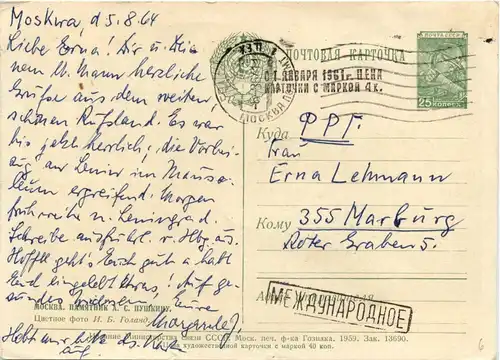 Moskwa, d 5.8.64
Liebe Erna! Dir u. Dei
nem lb. Mann herzliche
Grüße aus dem weiten
schönen Rußland. Es war
bis jetzt herrlich, die Vorbei-
am Lenin im Mauso-
leum ergreifend. Morgen
früh weiter n. Leningrad.
Schreibe ausführl. v. Hbg. aus.
Hoffe geht's Euch gut u habt
Euch eingelebt
Eure
ПОЧТОВАЯ КАРТОЧКА
С 1 ЯНВАРЯ 1961 г. ЦЕНА
КАРТОЧКИ С МАРКОЙ 4 к.
МОСКВА
ПОЧТА СССР
25 КОПЕЕК
Куда ФРГ.
Frau
Erna Lehmann
Кому 355 Marburg
Roter Graben 5.
МЕЖДУНАРОДНОЕ
МОСКВА. ПАМЯТНИК А. С. ПУШКИНУ.
Цветное фото И. Б. Голанд
Издание Министерства связи СССР. Моск. печ. ф-ка Гознака. 1959. Зак. 13690.
художественной карточки с маркой 40 коп.
6